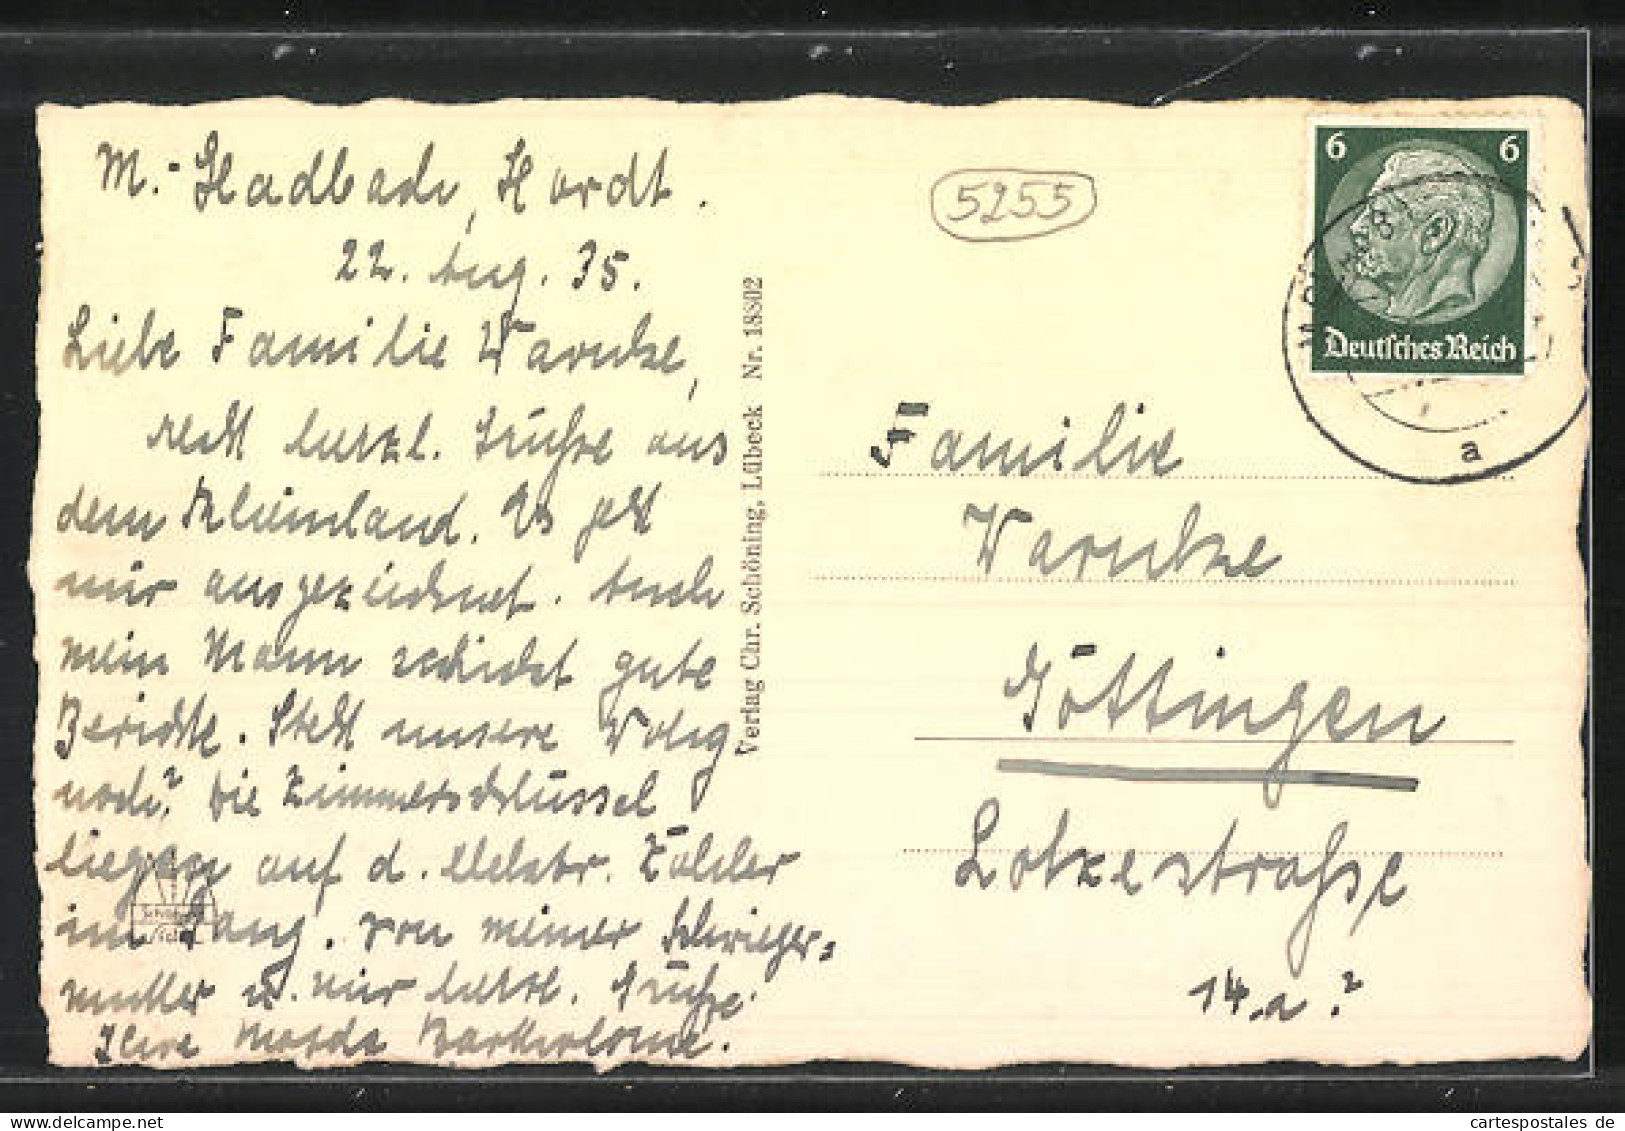 M.-Gladbach, Hardt.
22. Aug. 35.
Liebe Familie Warnke,
recht herzl. Grüße aus
dem Rheinland. Es geht
mir ausgezeichnet. Auch
mein Mann schickt gute
Berichte. Steht unsere Wohng
noch? Die Zimmerschlüssel
liegen auf d. elektr. Zähler
im Gang. Von meiner Schwieger-
mutter u. mir herzl. Grüße.
Ihre Bartholome.
Verlag Chr. Schöning, Lübeck Nr. 18302
5255
6 6
Deutsches Reich
a
Familie
Warnke
Göttingen
Lotzestraße
14.a?
cartespostales de